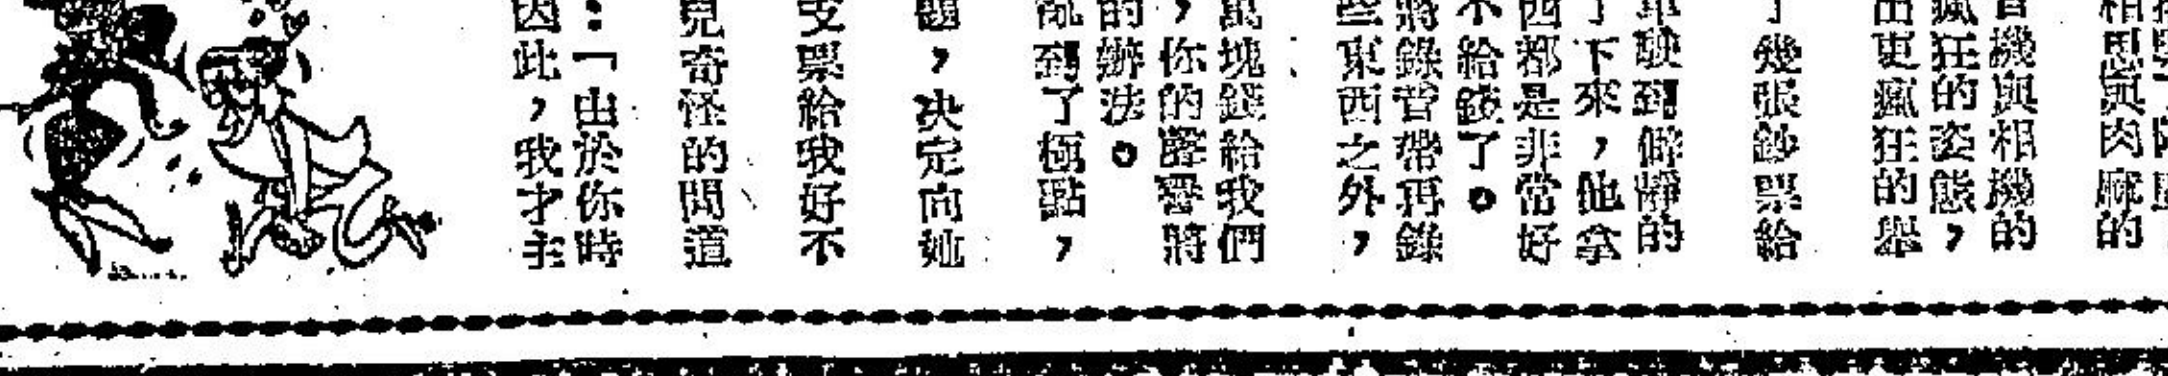 相思與肉麻的
機與相機的
瘋狂的姿態，
出更瘋狂的舉
幾張鈔票給
駛到僻靜的
了下來，他拿
西都是非常好
不給錢了。
將錄音帶再錄
些東西之外，
萬塊錢給我們
，你的聲譽將
的辦法。
亂到了極點，
題，决定向她
支票給我好不
兒奇怪的問道
：「由於你時
因此，我才主